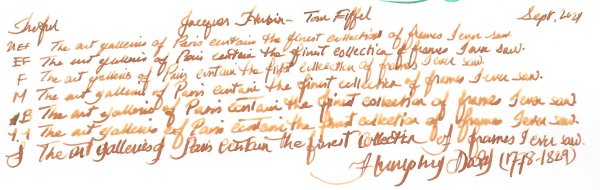 Jacques Herbin - Tour Eiffel Sept. 2021
EF The art galleries of Paris contain the finest collection of frames I ever saw.
EF The art galleries of Paris contain the finest collection of frames I ever saw.
F The art galleries of Paris contain the finest collection of frames I ever saw.
M The art galleries of Paris contain the finest collection of frames I ever saw.
B The art galleries of Paris contain the finest collection of frames I ever saw.
1.1 The art galleries of Paris contain the finest collection of frames I ever saw.
J The art galleries of Paris contain the finest collection of frames I ever saw.
Humphry Davy (1778-1829)